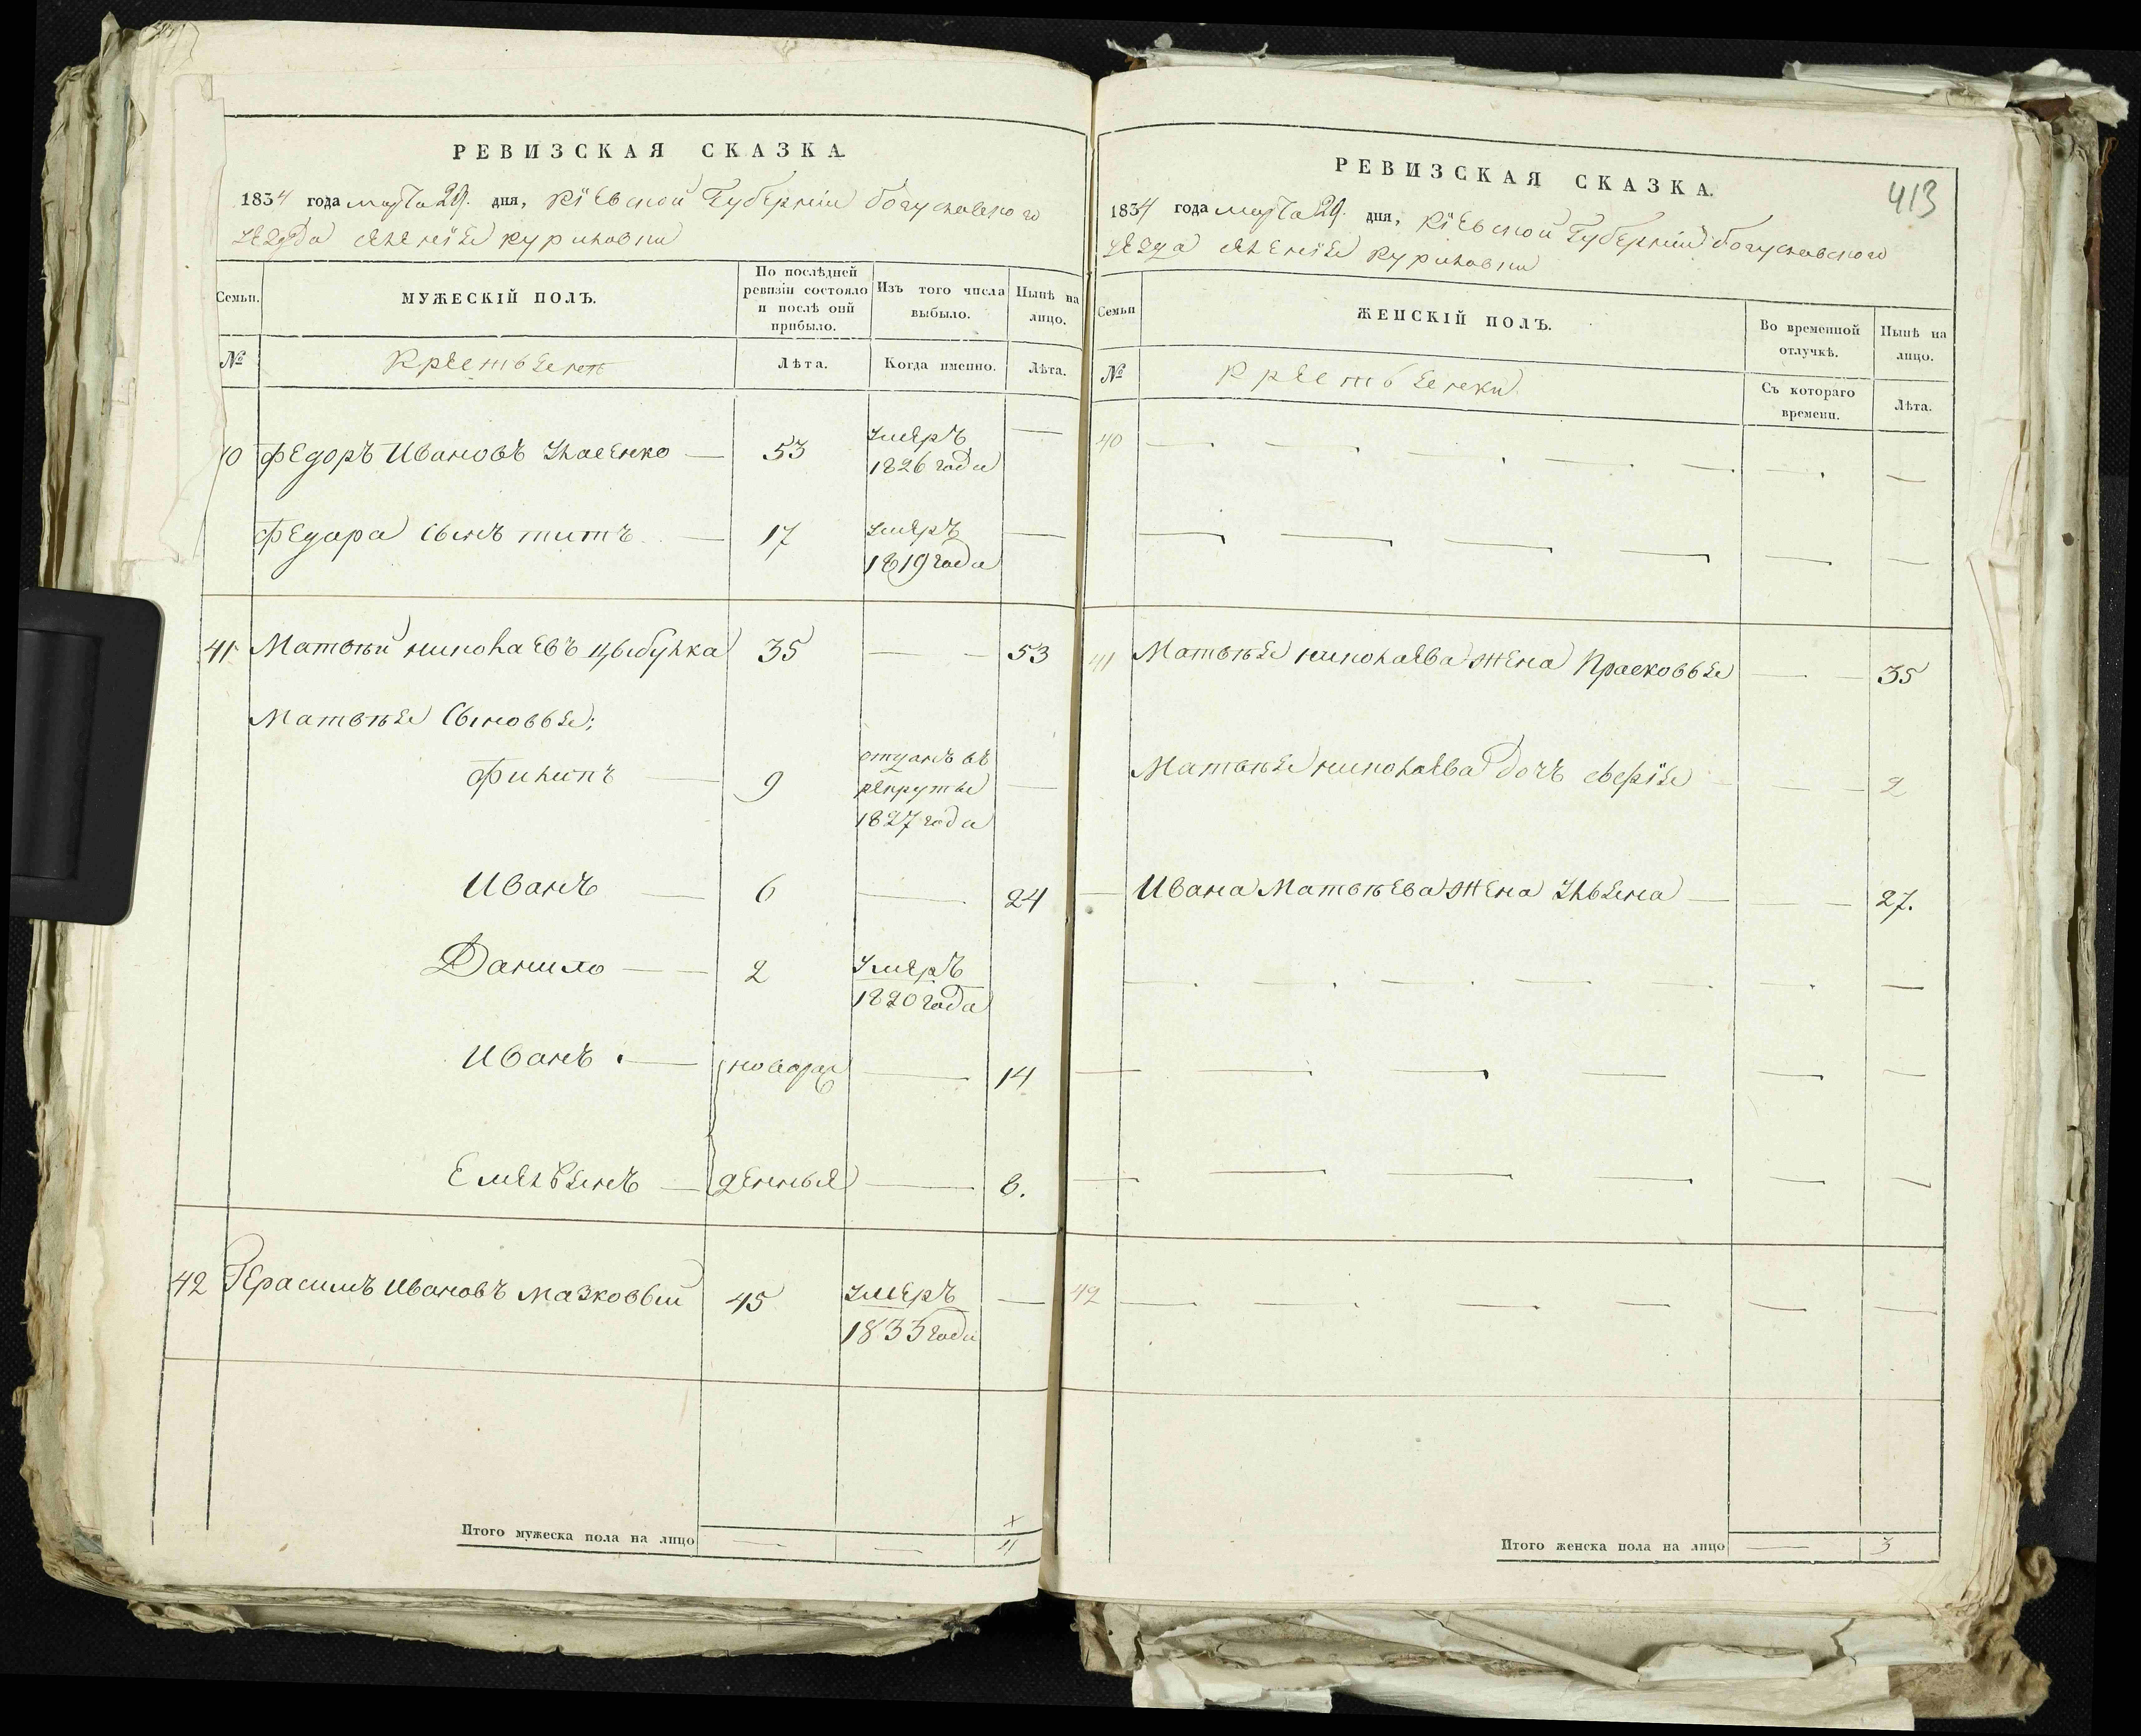 РЕВИЗСКАЯ СКАЗКА
1834 года марта 29. дня, Кіевской Губерніи Богуславского
уезда селенія Куриловки
Семьи.
МУЖЕСКІЙ ПОЛЪ.
По послѣдней ревизіи состояло и послѣ оній прибыло.
Изъ того числа выбыло.
Нынѣ на лицо.
№
Крестьяне
Лѣта.
Когда именно.
Лѣта.
40 Федоръ Ивановъ Власенко — 53 умеръ 1826 года —
Федора сынъ титъ — 17 умеръ 1819 года —
41 Матвѣй николаевъ цыбулка 35 — — 53
Матвѣя Сыновья;
Филипъ — 9 отданъ въ рекруты 1827 года —
Иванъ — 6 — 24
Данило — — 2 умеръ 1820 года
Иванъ — новорож — 14
Емельянъ — денныя — 8.
42 Герасимъ Ивановъ Мазковый 45 умеръ 1833 года —
Итого мужеска пола на лицо — — 4
РЕВИЗСКАЯ СКАЗКА.
413
1834 года марта 29. дня, Кіевской Губерніи Богуславского
уезда селенія Куриловки
Семьи
ЖЕНСКІЙ ПОЛЪ.
Во временной отлучкѣ.
Нынѣ на лицо.
№
Крестьянки
Съ котораго времени.
Лѣта.
40 — — — — — — —
— — — — — —
41 Матвѣя николаева жена Прасковья — — 35
Матвѣя николаева дочь — — 2
— Ивана Матвѣева жена Ульяна — — — 27.
— — — — — — —
— — — — — —
— — — — — —
42 — — — — — — —
Итого женска пола на лицо — 3